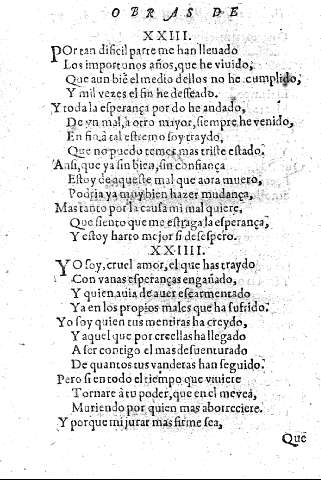 OBRAS DE
XXIII.
POr tan dificil parte me han lleuado
Los importunos años, que he viuido,
Que aun biẽ el medio dellos no he cumplido,
Y mil vezes el fin he desseado.
Y toda la esperança por do he andado,
De vn mal, à otro mayor, siempre he venido,
En fin, à tal estremo soy traydo,
Que no puedo temer mas triste estado.
Ansi, que ya sin bien, sin confiança
Estoy de aqueste mal que aora muero,
Podria ya muy bien hazer mudança,
Mas tanto por la causa mi mal quiere,
Que siento que me estraga la esperança,
Y estoy harto mejor si desespero.
XXIIII.
YO soy, cruel amor, el que has traydo
Con vanas esperanças engañado,
Y quien auia de auer escarmentado
Ya en los propios males que ha sufrido.
Yo soy quien tus mentiras ha creydo,
Y aquel que por creellas ha llegado
A ser contigo el mas desuenturado
De quantos tus vanderas han seguido.
Pero si en todo el tiempo que viuiere
Tornare à tu poder, que en el me vea,
Muriendo por quien mas aborreciere.
Y porque mi jurar mas firme sea,
Que